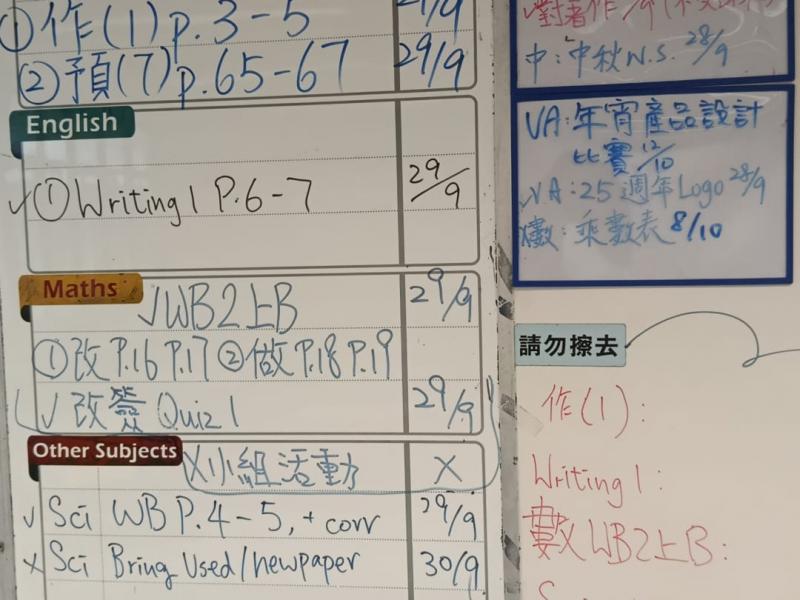 ①作(1)p.3-5
②預(7)p.65-67 29/9
English
✓①Writing 1 P.6-7 29/9
Maths
✓WB2上B 29/9
①改P.16 P.17 ②做P.18 P.19
✓改簽Quiz 1 29/9
Other Subjects
X小組活動 X
✓Sci WB P.4-5, + corr 29/9
X Sci Bring Used/newpaper 30/9
中:中秋N.S. 28/9
VA:年宵產品設計
比賽 12/10
✓VA:25週年Logo 28/9
數:乘數表 8/10
請勿擦去
作(1):
Writing 1:
數WB2上B: